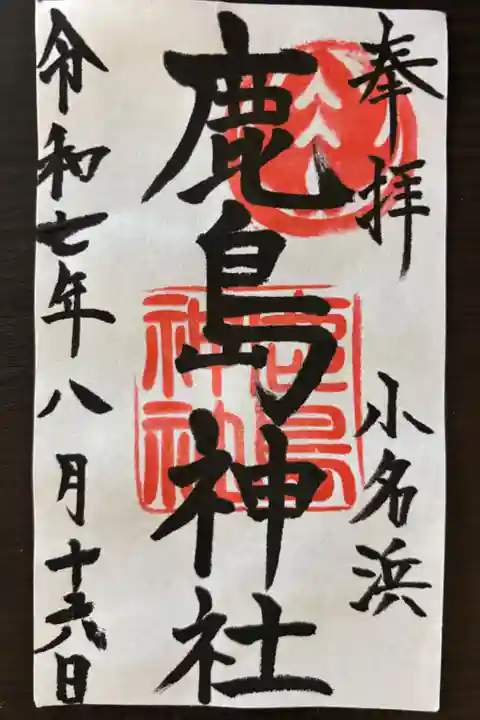 奉拝 小名浜
鹿島神社
鹿島神社
令和七年八月十六日